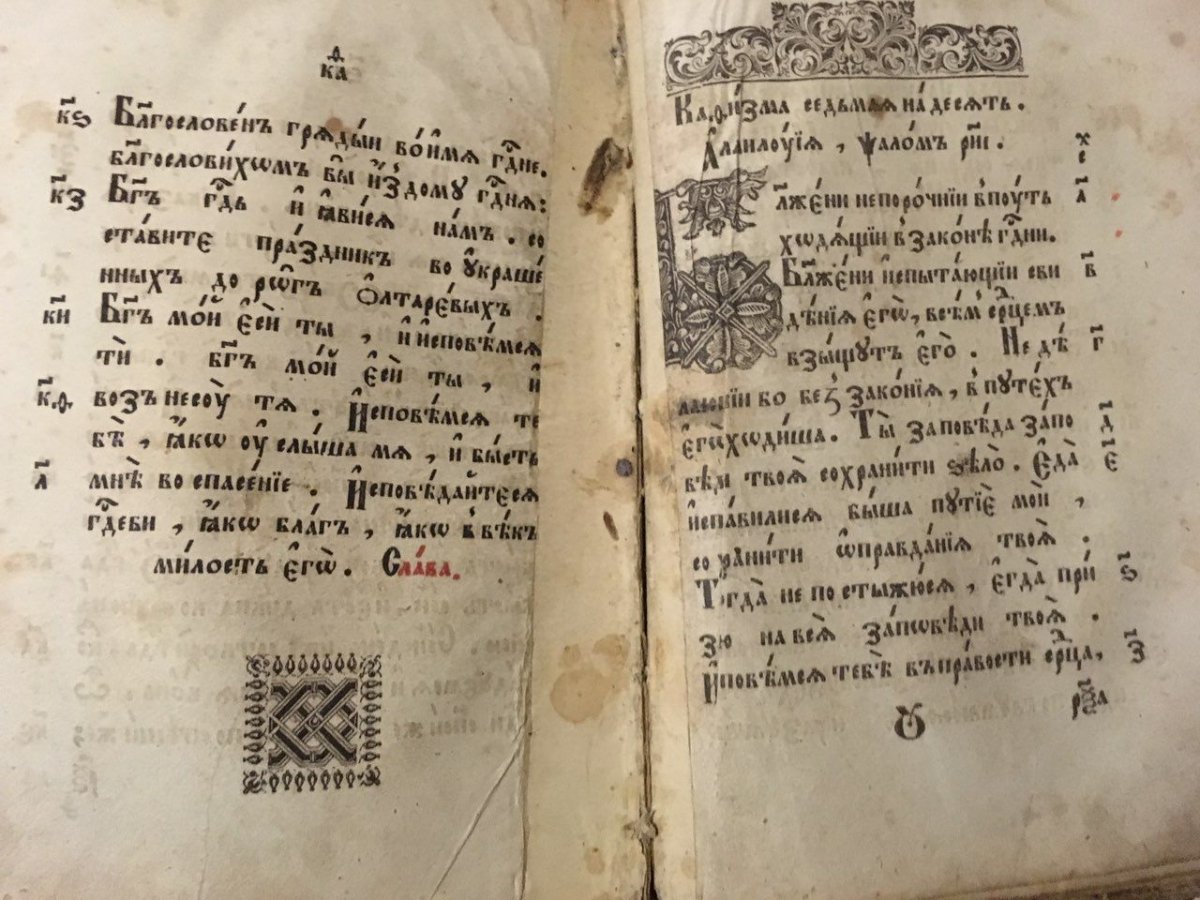 к҃д
к҃ѕ Бл҃гослове́нъ гряды́и во и҆́мя гд҇не.
бл҃гослови́хѡмъ вы̀ и҆здо́му гд҇ня:
к҃з Бг҃ъ гд҇ь и҆ ꙗ҆ви́ся на́мъ. со
ста́вите пра́здникъ во ѹ҆краше́
нныхъ до ро́гъ ѻ҆лтаре́выхъ.
к҃и Бг҃ъ мо́й є҆сѝ ты̀, и҆ и҆спове́мся
ти́. бг҃ъ мо́й є҆сѝ ты, и҆
к҃ѳ возънесоу́ тя. И҆сповѣ́мся те
бѣ̀, ꙗ҆́кѡ оу҆слы́ша мя, и҆ бы́сть
л҃ мнѣ̀ во спасе́нїе. И҆сповѣ́дайтеся
гд҇еви, ꙗ҆́кѡ бла́гъ, ꙗ҆́кѡ в вѣ́къ
ми́лость є҆гѡ̀. Сла́ва.
Каѳи́зма седьмая на́десять.
А҆ллилоу́їя, ѱало́мъ рн҃і.
Бл҃же́ни непоро́чнїи в поу́ть а҃
хѡдя́щїи в зако́нѣ гд҇ни.
Бл҃же́ни и҆спыта́ющїи сви в҃
дѣ́нїя є҆гѡ̀, всѣ́м ср҇цемъ
взы́щутъ є҆го̀. Не дѣ́ г҃
лающїи бо без̾зако́нїя, в путе́хъ
є҆гѡ̀ хѡди́ша. Ты̀ заповѣ́да за́по д҃
вѣ́ди твоя̀ сохрани́ти ѕѣлѡ̀. Є҆да̀ є҃
и҆спра́вилися бы́ша путїѐ мо́й,
сохрани́ти ѡ҆правда́нїя твоя̀.
Тогда̀ не постыжю́ся, є҆гда̀ при́ ѕ҃
зрю на вся̀ за́пѡвѣди твоя̀.
И҆сповѣ́мся тебѣ̀ въ пра́вости ср҇ца, з҃